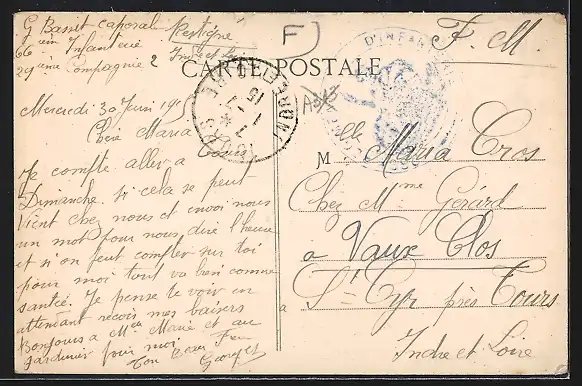 G Bassit Caporal Restigné
66 ième Infanterie Indre et Loire
29 ième Compagnie 2
F
F. M.
CARTE POSTALE
Mercredi 30 Juin 1915
Chère Maria
Je compte aller a Tours
Dimanche. si cela se peut
vient chez nous et envoi nous
un mot pour nous dire l'heure
et si on peut compter sur toi
pour moi tout va bien comme
santé. Je pense te voir en
attendant recois mes baisers
Bonjours a Me Marie et au
jardinier pour moi
Ton Beau Frère
Georges
TOURS
15
D'INFANTERIE
M lle Maria Cros
Chez Mme Gérard
a Vaux Clos
a St Cyr près Tours
Indre et Loire